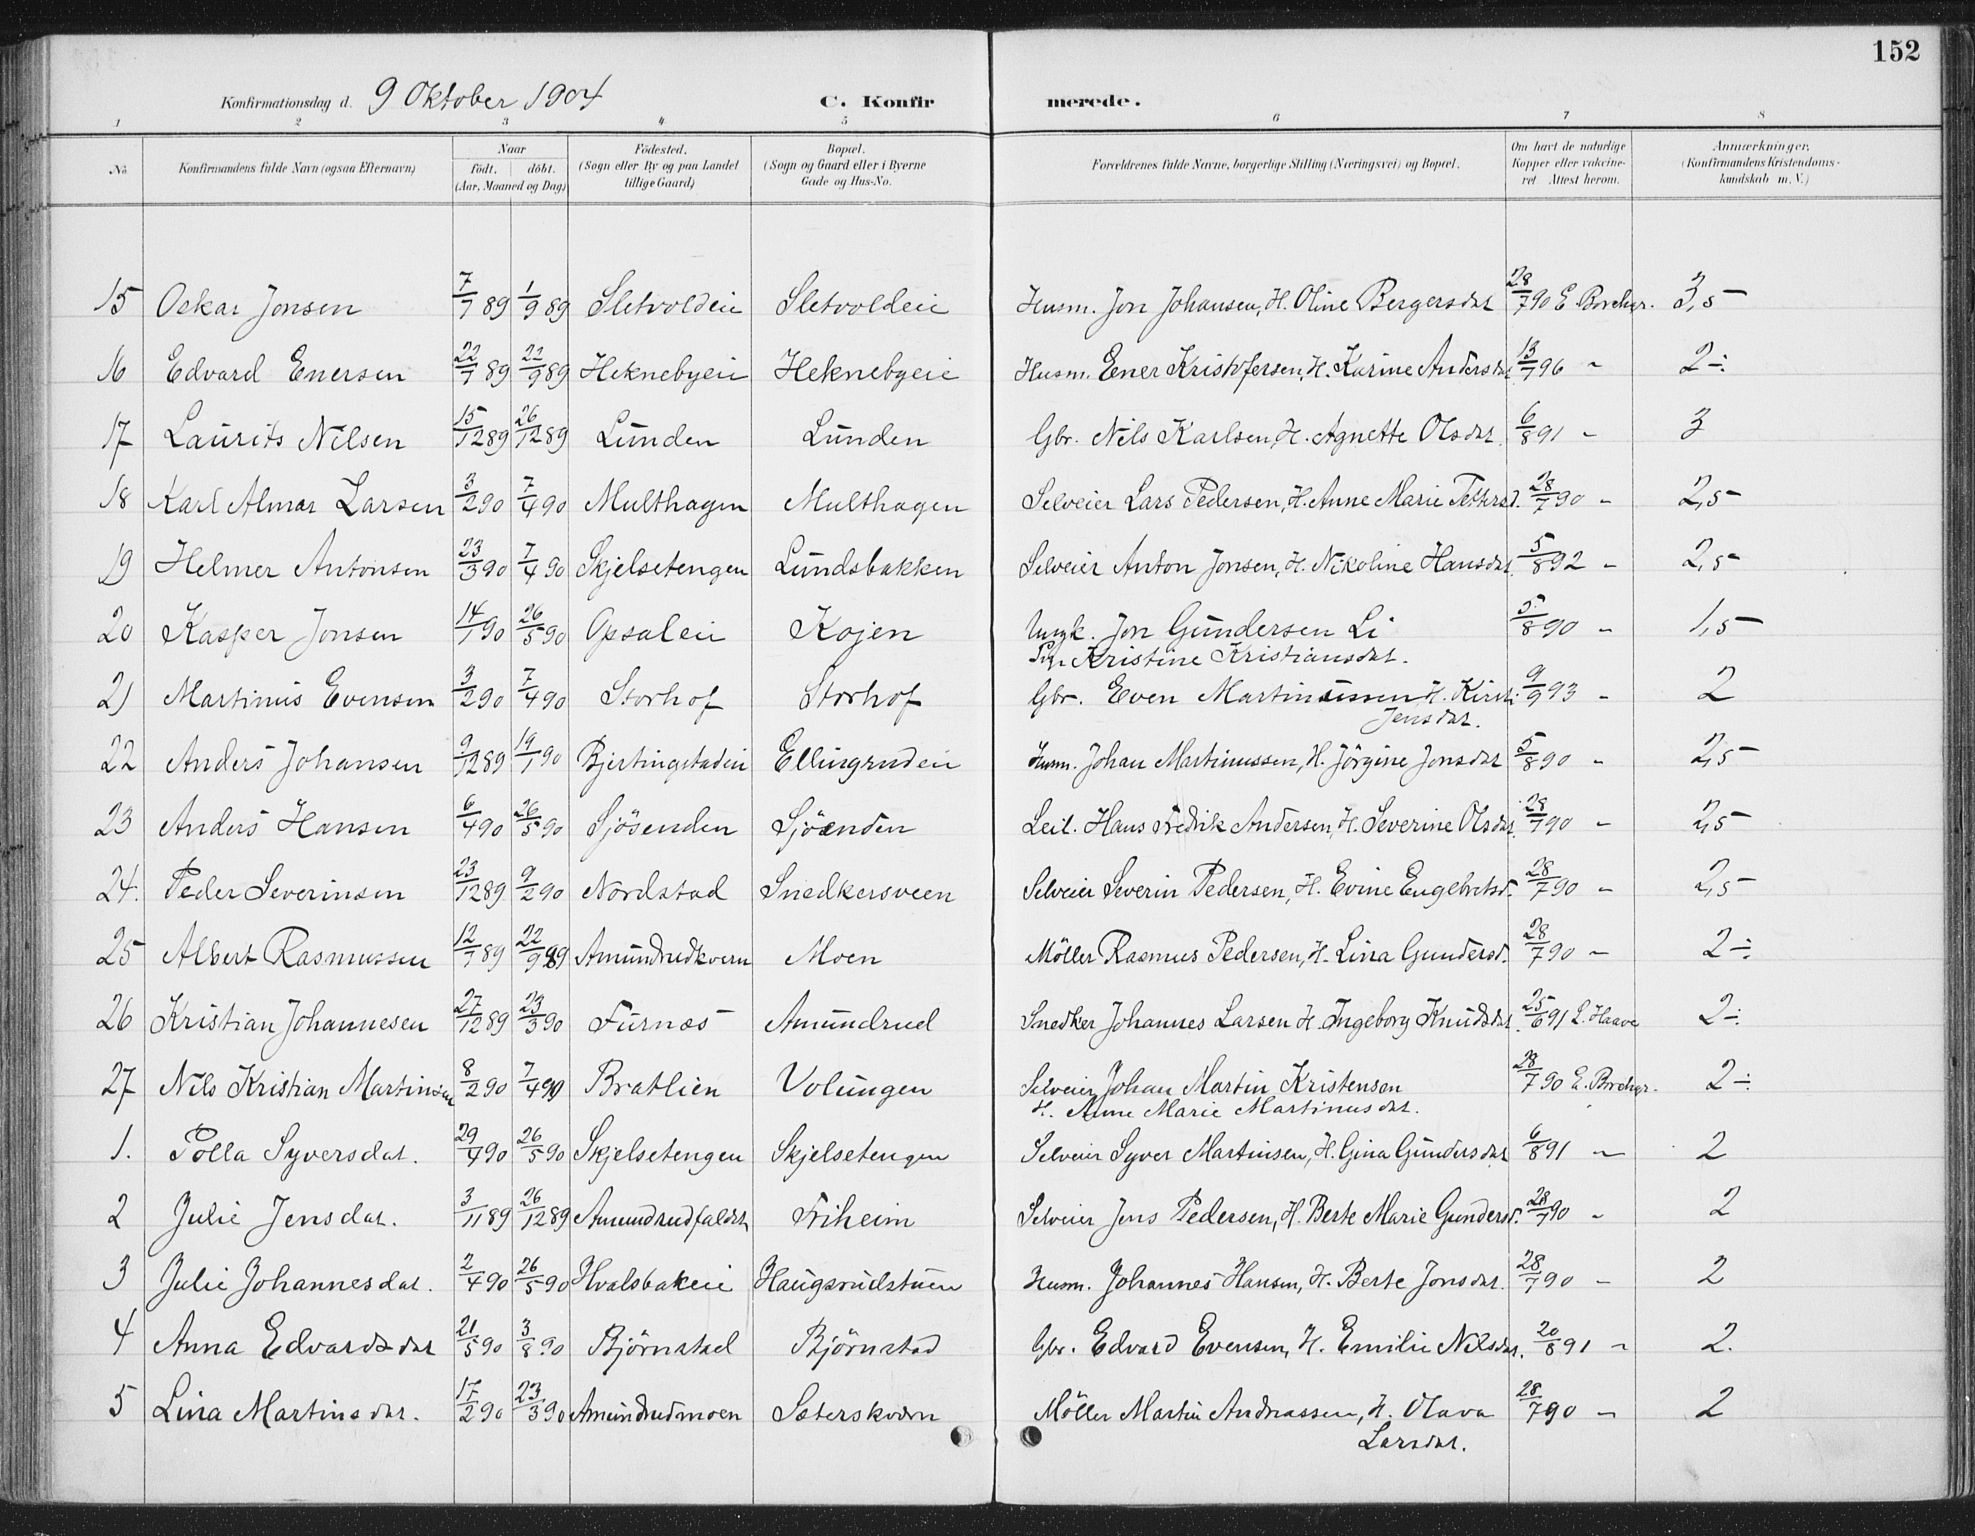 152
Konfirmationsdag d. 9 Oktober 1904 C. Konfirmerede.
1 2 3 4 5 6 7 8
No Konfirmandens fulde Navn (ogsaa Efternavn) Naar födt. döbt. (Aar, Maaned og Dag) Födested. (Sogn eller By og paa Landet tillige Gaard) Bopæl. (Sogn og Gaard eller i Byerne Gade og Hus-No. Forældrenes fulde Navne, borgerlige Stilling (Næringsvei) og Bopæl. Om havt de naturlige Kopper eller vakcineret Attest herom. Anmærkninger. (Konfirmandens Kristendomskundskab m. V.)
15 Oskar Jonsen 7/7 89 1/9 89 Sletvoldeie Sletvoldeie Husm. Jon Johansen, H. Oline Bergersdat 28/7 90 E Borchgr. 3,5
16 Edvard Enersen 22/7 89 22/9 89 Heknebyeie Heknebyeie Husm. Ener Kristofersen, H. Karine Andersdat 13/7 96 " 2÷
17 Laurits Nilsen 15/12 89 26/12 89 Lunden Lunden Gbr. Nils Karlsen, H. Agnette Olsdat. 6/8 91 " 3
18 Karl Almar Larsen 3/2 90 7/4 90 Multhagen Multhagen Selveier Lars Pedersen, H. Anne Marie Pettersd. 28/7 90 " 2,5
19 Helmer Antonsen 23/3 90 7/4 90 Skjelsetengen Lundsbakken Selveier Anton Jonsen, H. Nikoline Hansdat. 5/8 92 " 2,5
20 Kasper Jonsen 14/1 90 26/5 90 Opsaleie Kojen Ungk. Jon Gundersen Li 5/8 90 " 1,5
Pig. Kristine Kristiansdat.
21 Martinus Evensen 3/2 90 7/4 90 Storhof Storhof Gbr. Even Martinussen H. Kirsti 9/9 93 " 2
Jensdat.
22 Anders Johansen 9/12 89 19/1 90 Bjertingstadeie Ellingrudeie Husm. Johan Martinussen, H. Jörgine Jonsdat 5/8 90 " 2,5
23 Anders Hansen 6/4 90 26/5 90 Sjösenden Sjösenden Leil. Hans Fredrik Andersen, H. Severine Olsdat. 28/7 90 " 2,5
24. Peder Severinsen 23/12 89 9/2 90 Nordstad Snedkersveen Selveier Severin Pedersen, H. Evine Engebretsd. 28/7 90 " 2,5
25 Albert Rasmussen 12/7 89 22/9 89 Amundrudkvern Moen Möller Rasmus Pedersen, H. Lina Gundersd. 28/7 90 " 2÷
26 Kristian Johannesen 27/12 89 23/3 90 Furnæs Amundrud Snedker Johannes Larsen H. Ingeborg Knudsdat. 25/6 91 L. Haave 2÷
27 Nils Kristian Martinsen 8/2 90 7/4 90 Bratlien Volungen Selveier Johan Martin Kristensen 28/7 90 E. Borchgr. 2÷
H. Anne Marie Martinusdat.
1. Polla Syversdat. 29/4 90 26/5 90 Skjelsetengen Skjelsetengen Selveier Syver Martinsen, H. Gina Gundersdat 6/8 91 " 2
2 Julie Jensdat. 3/11 89 26/12 89 Amundrudfaldet Friheim Selveier Jens Pedersen, H. Berte Marie Gundersd. 28/7 90 " 2
3 Julie Johannesdat. 2/4 90 26/5 90 Hvalsbakeie Haugsrudstuen Husm. Johannes Hansen, H. Berte Jonsdat. 28/7 90 " 2
4 Anna Edvardsdat 21/5 90 3/8 90 Björnstad Björnstad Gbr. Edvard Evensen, H. Emilie Nilsdat. 20/8 91 " 2.
5 Lina Martinsdat. 17/2 90 23/3 90 Amundrudmoen Sæterskværn Möller Martin Andreassen, H. Olava 28/7 90 " 2
Larsdat.